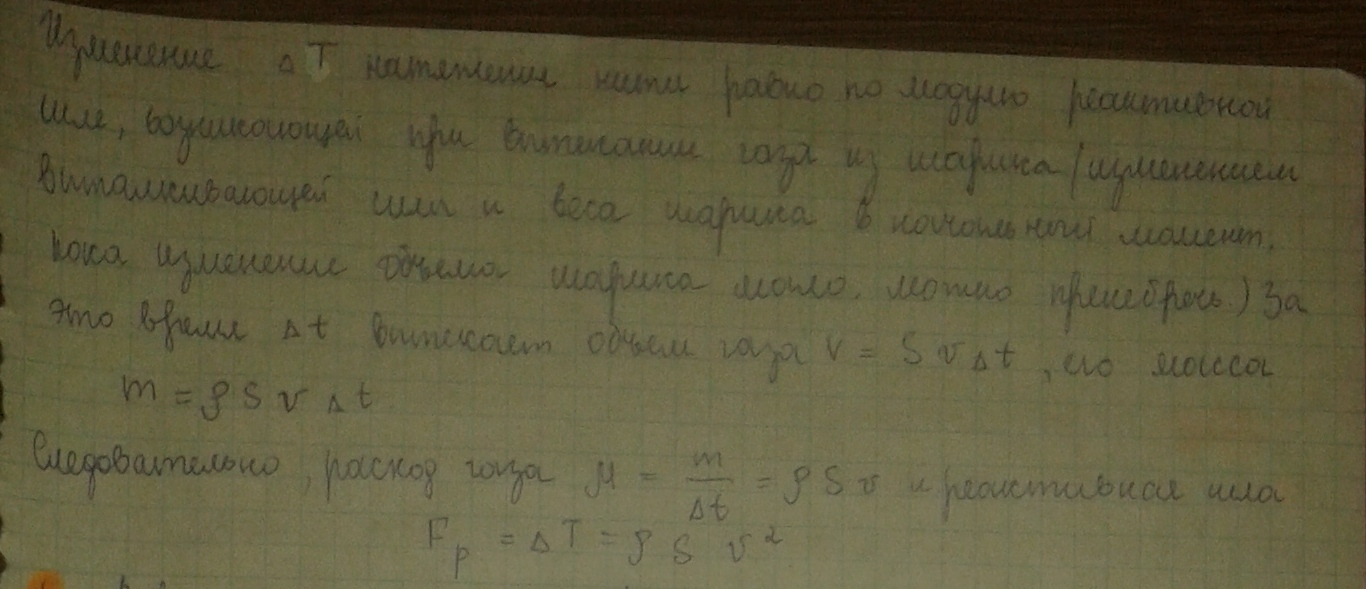 Изменение ΔT натяжения нити равно по модулю реактивной
силе, возникающей при вытекании газа из шарика (изменением
выталкивающей силы и веса шарика в начальный момент,
пока изменение объема шарика мало, можно пренебречь.) За
это время Δt вытекает объем газа V = S v Δt, его масса
m = ρ S v Δt
Следовательно, расход газа μ = m/Δt = ρ S v и реактивная сила
F_p = ΔT = ρ S v²